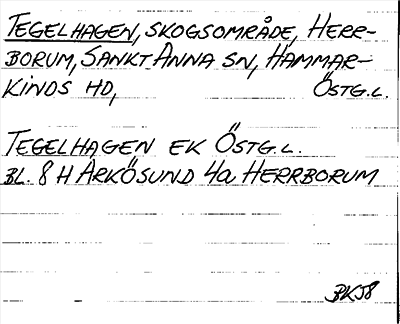 TEGELHAGEN, SKOGSOMRÅDE, HERR-
BORUM, SANKT ANNA SN, HAMMAR-
KINDS HD, ÖSTG.L.
TEGELHAGEN EK ÖSTG.L.
BL. 8 H ARKÖSUND 4a HERRBORUM
BKJ8